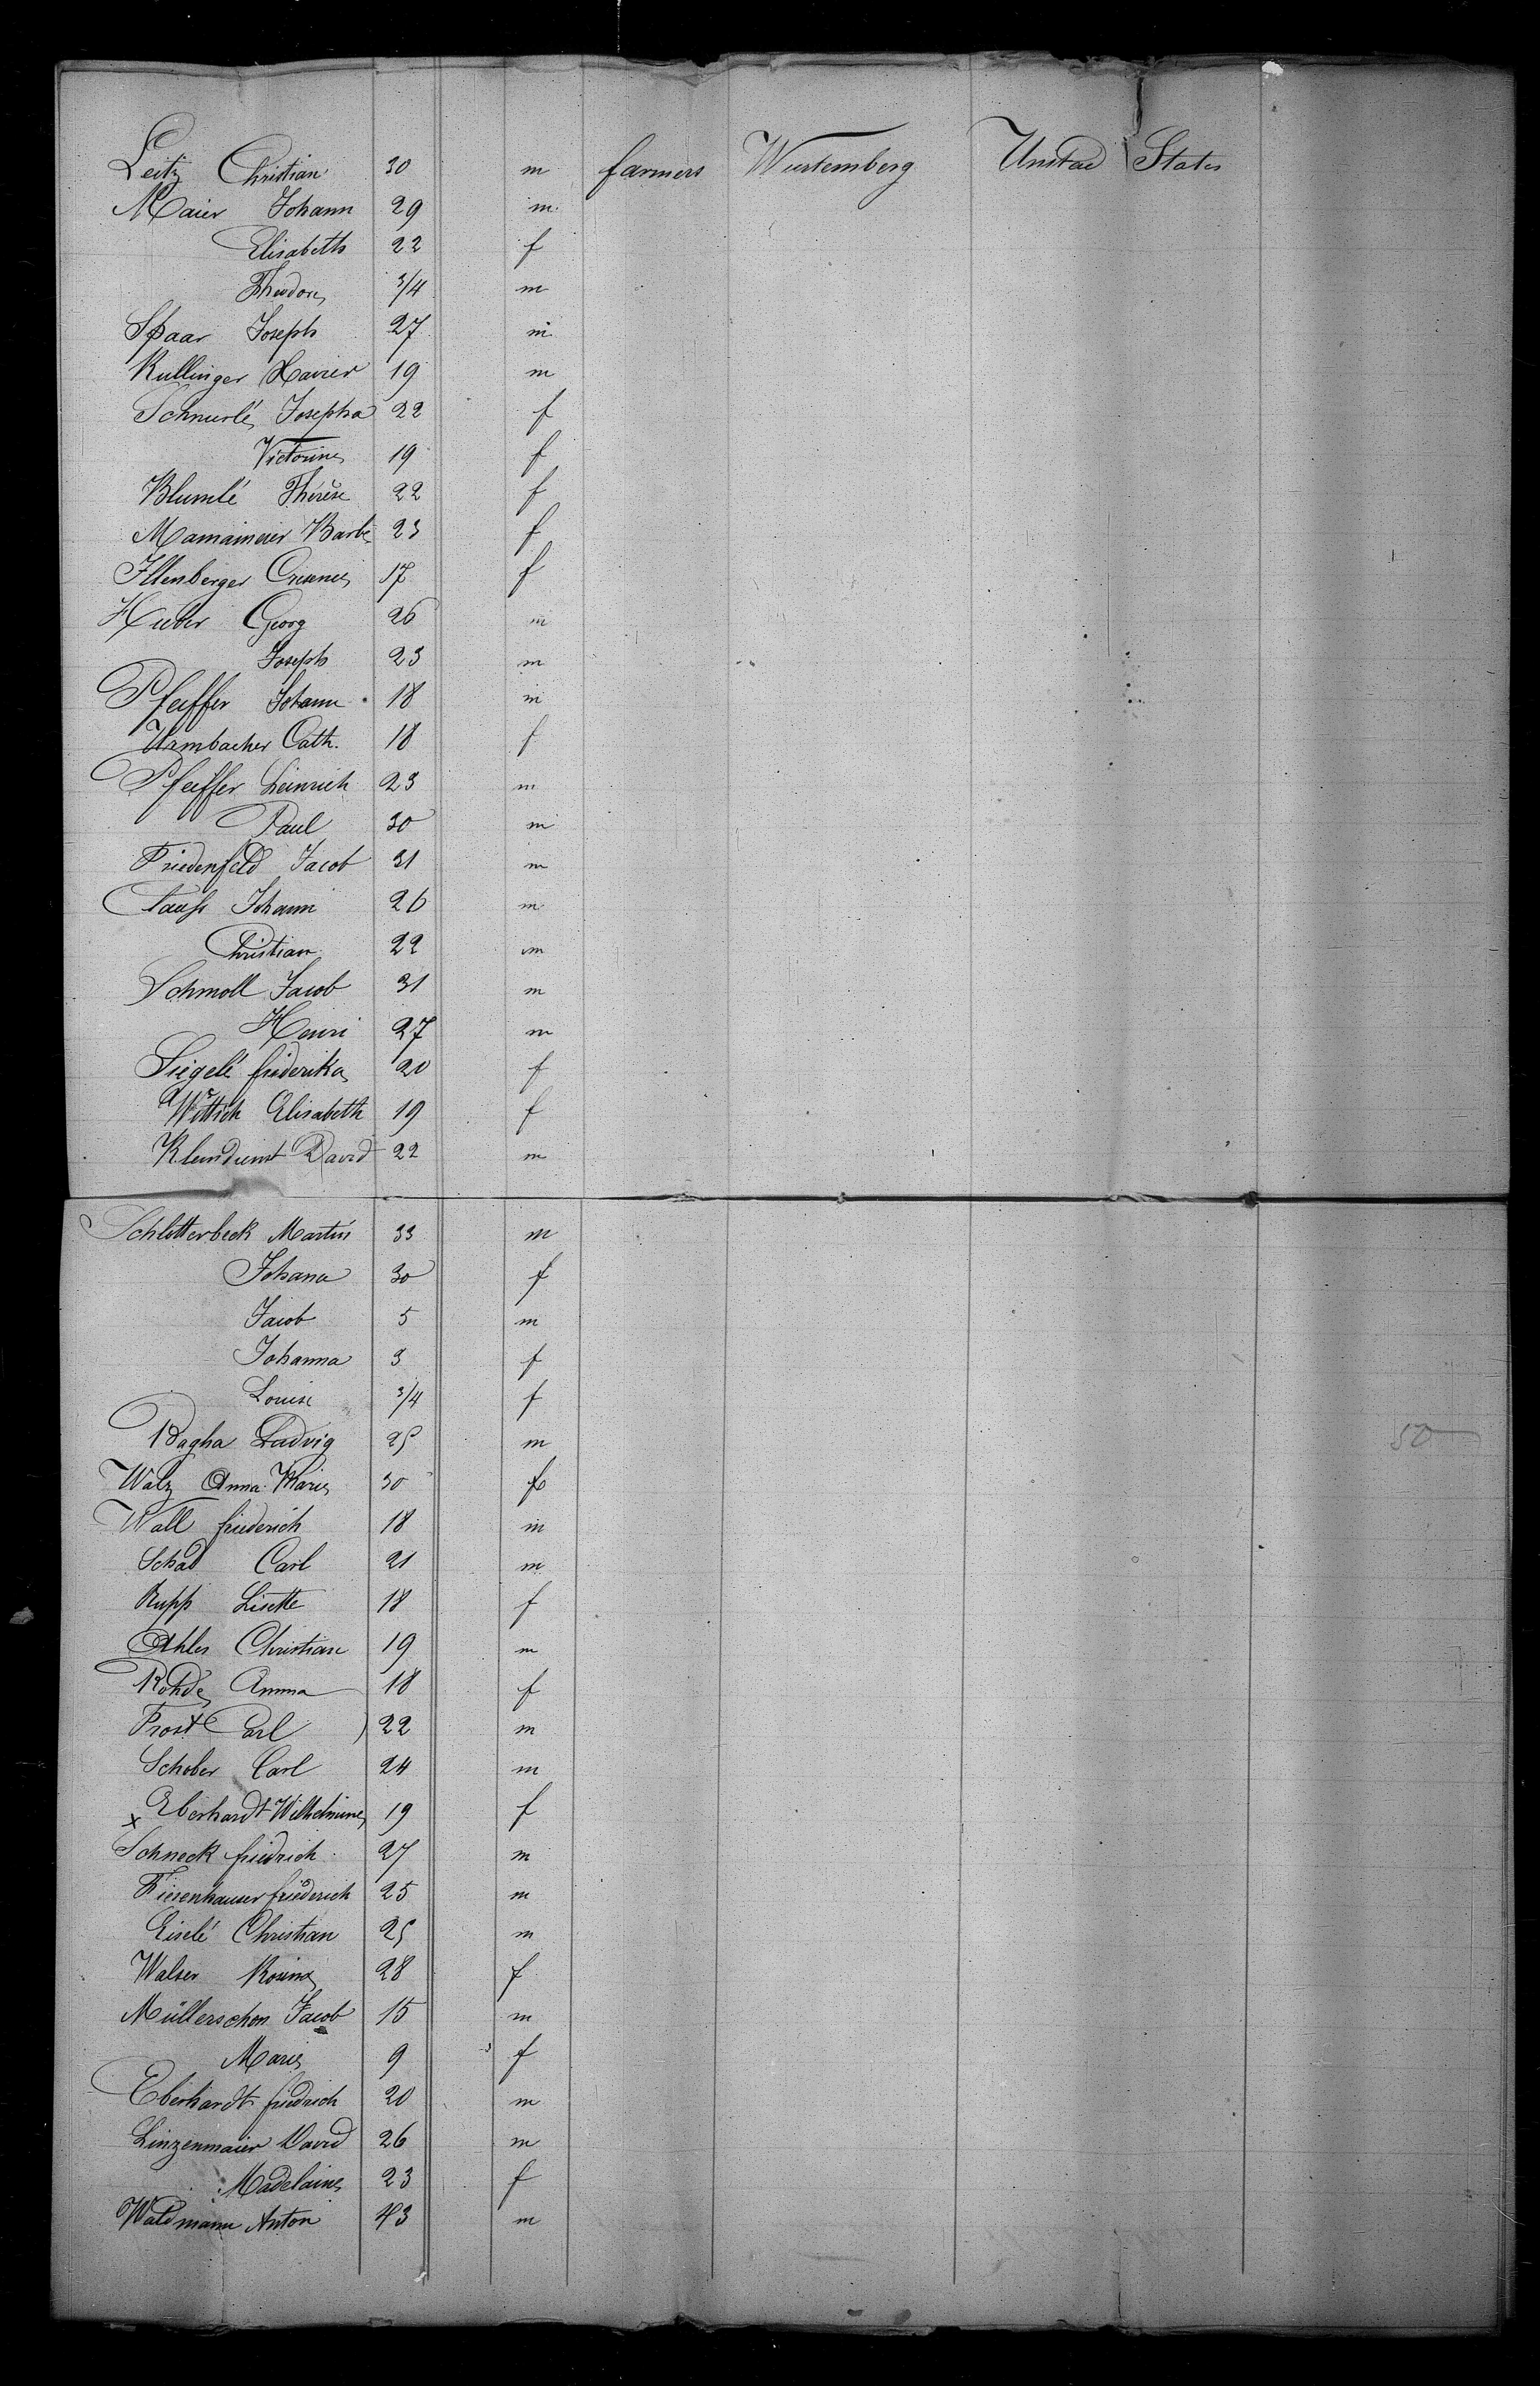 Leitz Christian 30 m farmers Wurtemberg Unitad States
Maier Johann 29 m
Elisabeth 22 f
Theodore 3/4 m
Spaar Joseph 27 m
Kullinger Xavier 19 m
Schnurlé Josepha 22 f
Victorine 19 f
Blumlé Thérèse 22 f
Mamaimeier Barbe 23 f
Illenberger 17 f
Huber Georg 26 m
Joseph 23 m
Pfeiffer Johann 18 m
Urmbacher Cath. 18 f
Pfeiffer Heinrich 23 m
Paul 30 m
Friedenfeld Jacob 31 m
Clauss Johann 26 m
Christian 22 m
Schmoll Jacob 31 m
Henri 27 m
Siegelé friderika 20 f
Wittich Elisabeth 19 f
Kleindienst David 22 m
Schlotterbeck Martin 33 m
Johana 30 f
Jacob 5 m
Johanna 3 f
Louise 3/4 f
Bagha Ludvig 25 m 50
Walz Anna Marie 30 f
Wall friederich 18 m
Schad Carl 21 m
Rupp Lisette 18 f
Ahles Christian 19 m
Rohdé Anna 18 f
Frost Carl 22 m
Schober Carl 24 m
x Eberhardt Wilhelmine 19 f
Schneck friedrich 27 m
Fiesenhauser friederich 25 m
Eiselé Christian 25 m
Walser Rosina 28 f
Müllerschon Jacob 15 m
Marie 9 f
Eberhardt friedrich 20 m
Linzenmaier David 26 m
Madelaine 23 f
Waldmann Anton 43 m